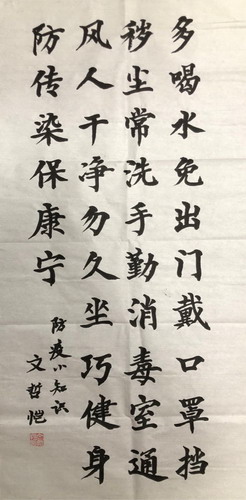 多喝水免出门戴口罩挡
秽尘常洗手勤消毒室通
风人干净勿久坐巧健身
防传染保康宁
防疫小知识
文哲恺